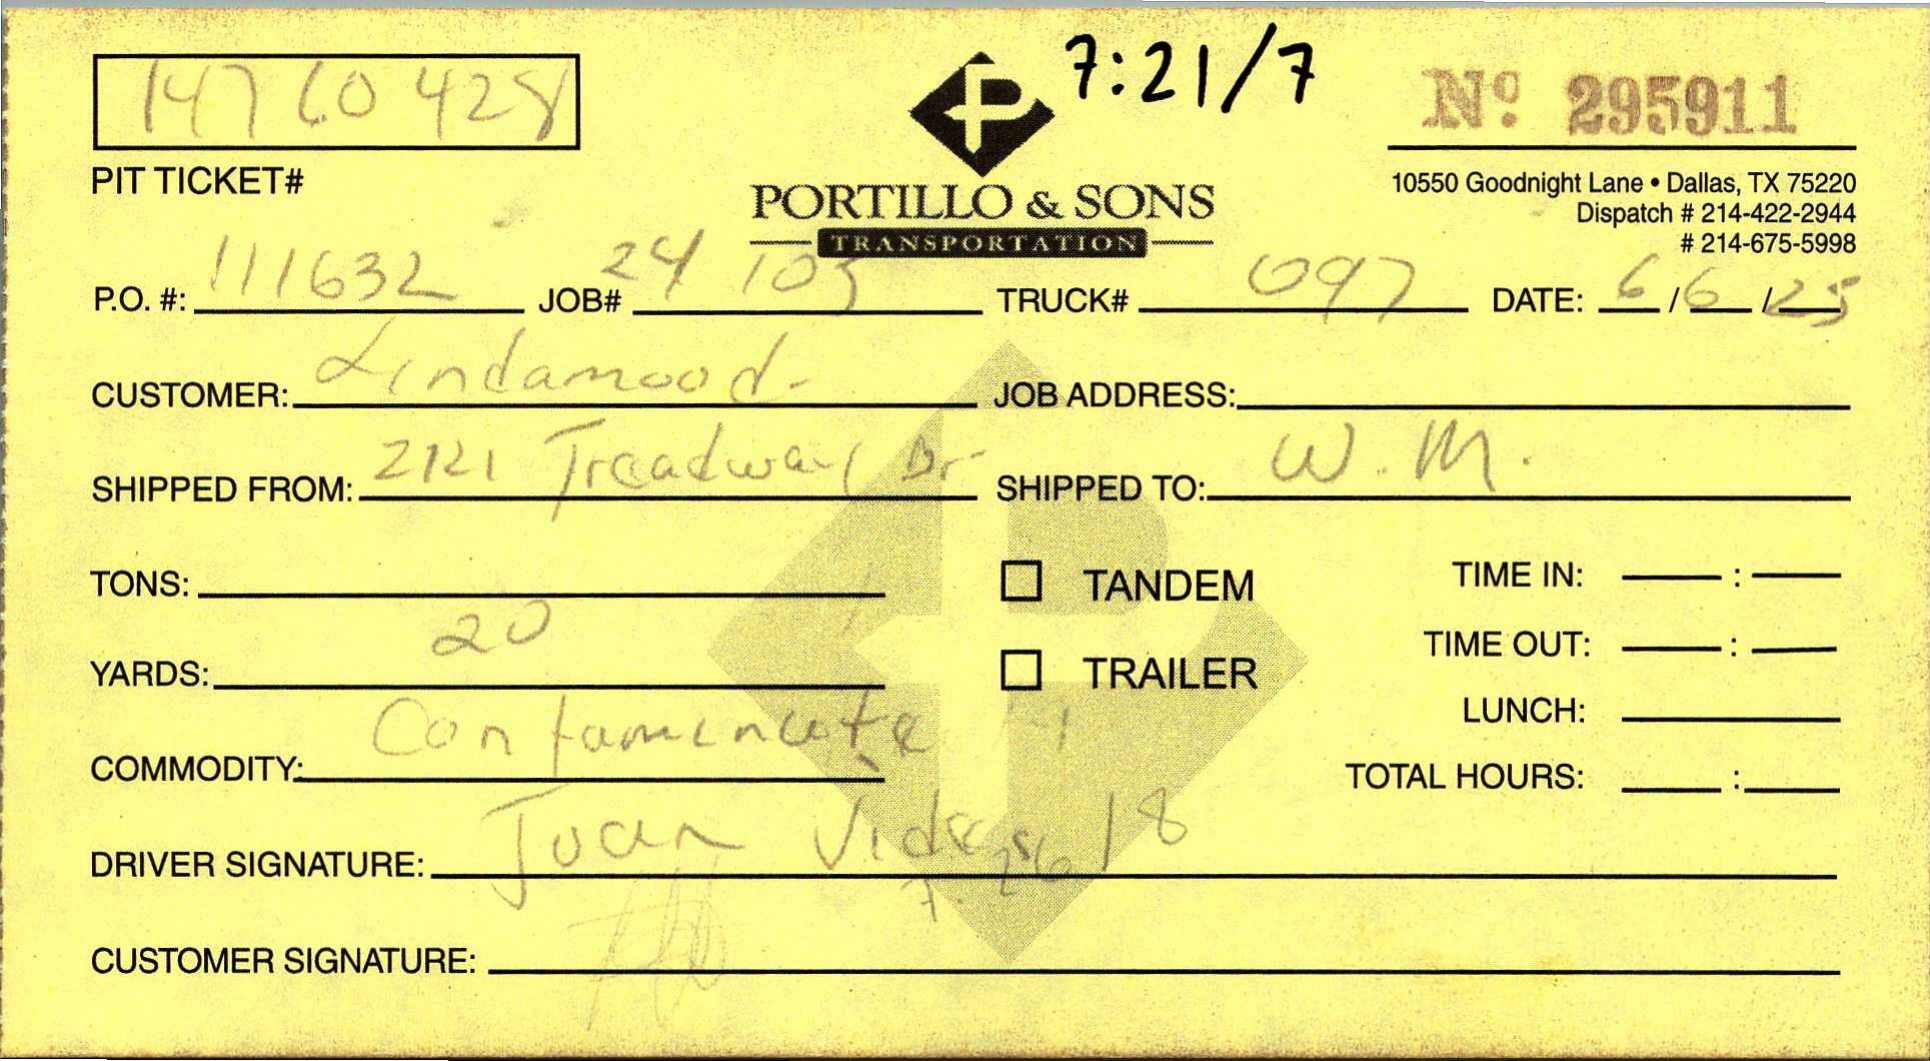 7:21/7
14760428
Nº 295911
PIT TICKET#
PORTILLO & SONS
TRANSPORTATION
10550 Goodnight Lane • Dallas, TX 75220
Dispatch # 214-422-2944
# 214-675-5998
P.O. #: 111632 JOB# 24 105 TRUCK# 097 DATE: 6/6/25
CUSTOMER: Lindamood JOB ADDRESS:
SHIPPED FROM: 2121 Treadway Dr SHIPPED TO: W.M.
TONS: TANDEM TIME IN: :
YARDS: 20 TRAILER TIME OUT: :
LUNCH:
COMMODITY: Contaminate TOTAL HOURS: :
DRIVER SIGNATURE: Juan 18
CUSTOMER SIGNATURE: